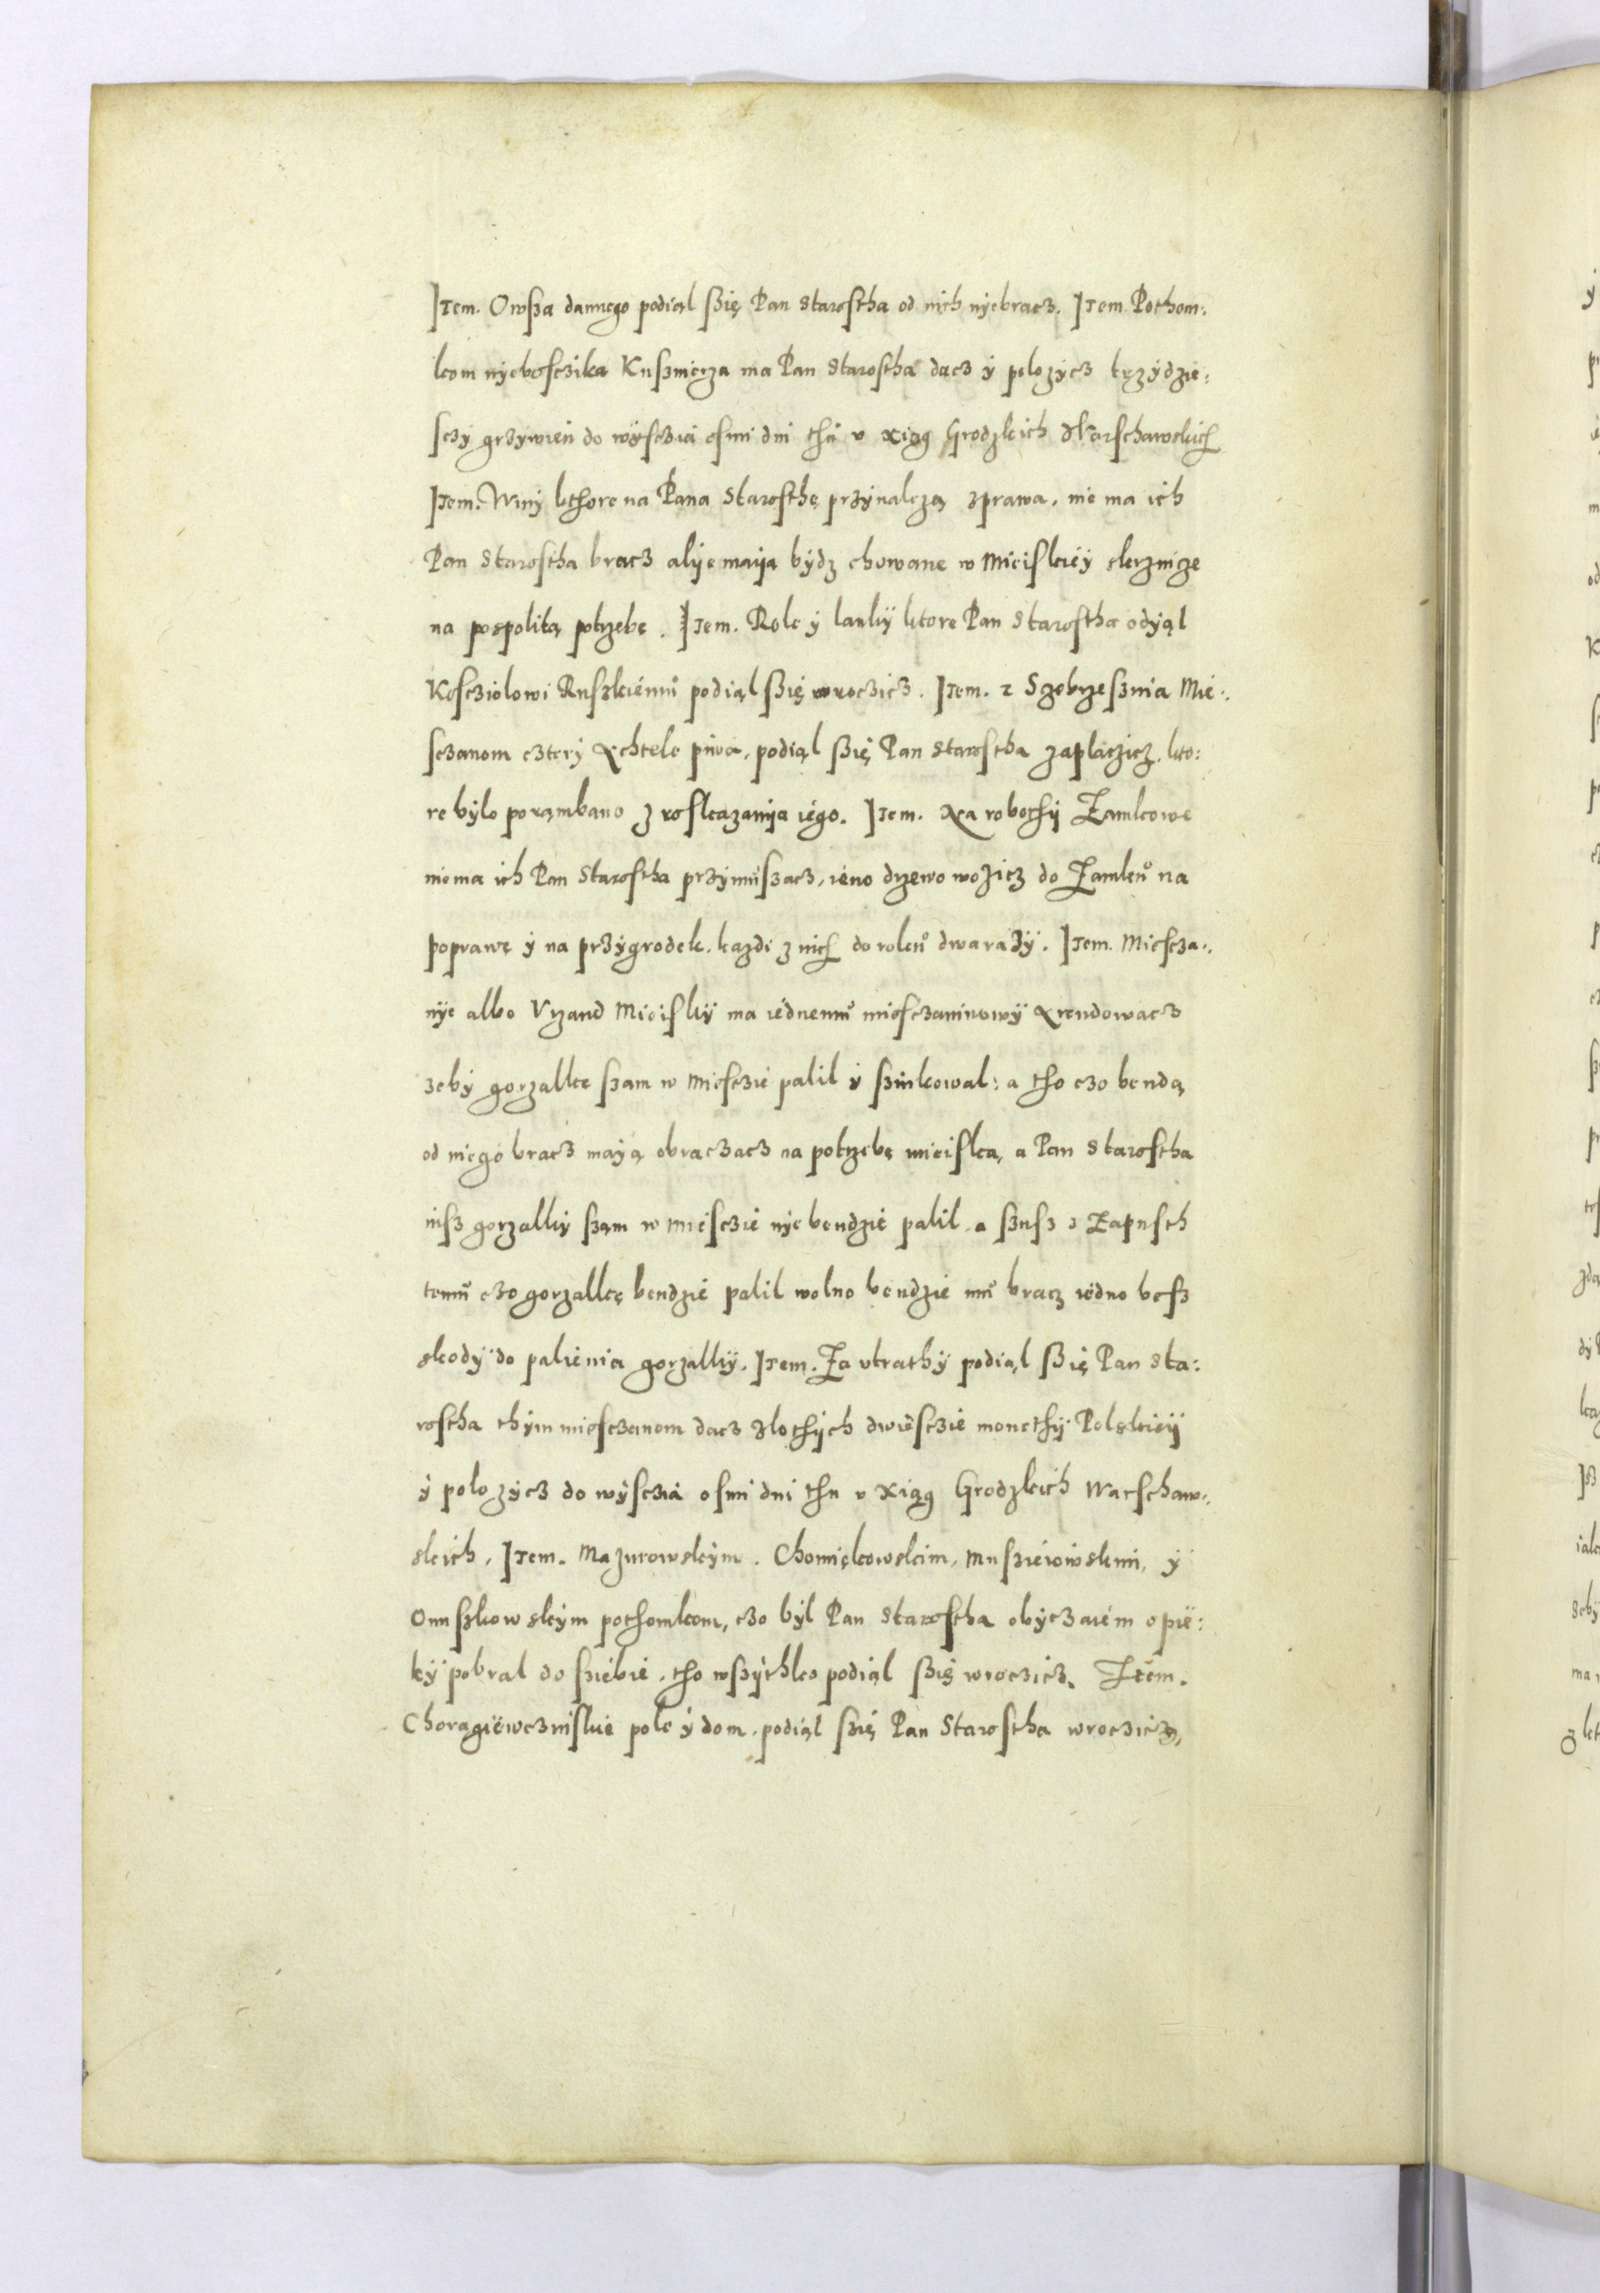 Item. Owsza dannego podiął sßię Pan Starostha od nich nÿebracz. Item. Pothom:
kom nÿebosczika Kuszmierza ma Pan Starostha dacz ÿ polozÿcz trzÿdzie:
sczÿ grzÿwien do wÿsczia osmi dni thu v xiąg Grodzkich Warschawskich
Item. Winÿ kthore na Pana Starosthę przÿnalezą zprawa, nie ma ich
Pan Starostha bracz alÿe maÿą bÿdz chowane w Mieiskieÿ skrznicze
na pospolitą potrzebę. Item. Role ÿ lankÿ ktore Pan Starostha odÿął
Koscziolowi Ruszkiemu podiął sßię wroczicz. Item. z Szebrzesznia Mie:
sczanom czterÿ Achtele piwa, podiął sßię Pan Starostha zaplaczicz, kto:
re bÿlo porąmbano z roskazanÿa iego. Item. Na robothÿ Zamkowe
niema ich Pan Starostha przÿmuszacz, ieno drzewo wozicz do Zamku na
poprawę ÿ na przÿgrodek, kazdi z nich do roku dwa razÿ. Item. Miescza:
nÿe albo Vrzand Mieiskÿ ma iednemu miesczaninowÿ Arendowacz
zebÿ gorzalke szam w miesczie palil ÿ szinkowal: a tho czo bendą
od niego bracz maÿą obraczacz na potrzebę mieiską, a Pan Starostha
iusz gorzalkÿ szam w miesczie nÿe bendzie palil. a szusz z Zapusth
temu czo gorzalkę bendzie palil wolno bendzie mu bracz iedno besz
skodÿ do palienia gorzalkÿ. Item. Za vtrathÿ podiął sßię Pan Sta:
rostha thÿm miesczanom dacz zlothÿch dwiesczie monethÿ Polskieÿ
ÿ polozÿcz do wÿsczia osmi dni thu v xiąg Grodzkich Warschaw:
skich. Item. Mazurowskÿm. Chomiękowskim, Musziewowskim, ÿ
Onuszkowskÿm pothomkom, czo bÿl Pan Starostha obÿczaiem opie:
kÿ pobral do sziebie. tho wszÿthko podiął sßię wroczicz. Item.
Choragiewczniskie pole ÿ dom. podiął sßię Pan Starostha wroczicz,